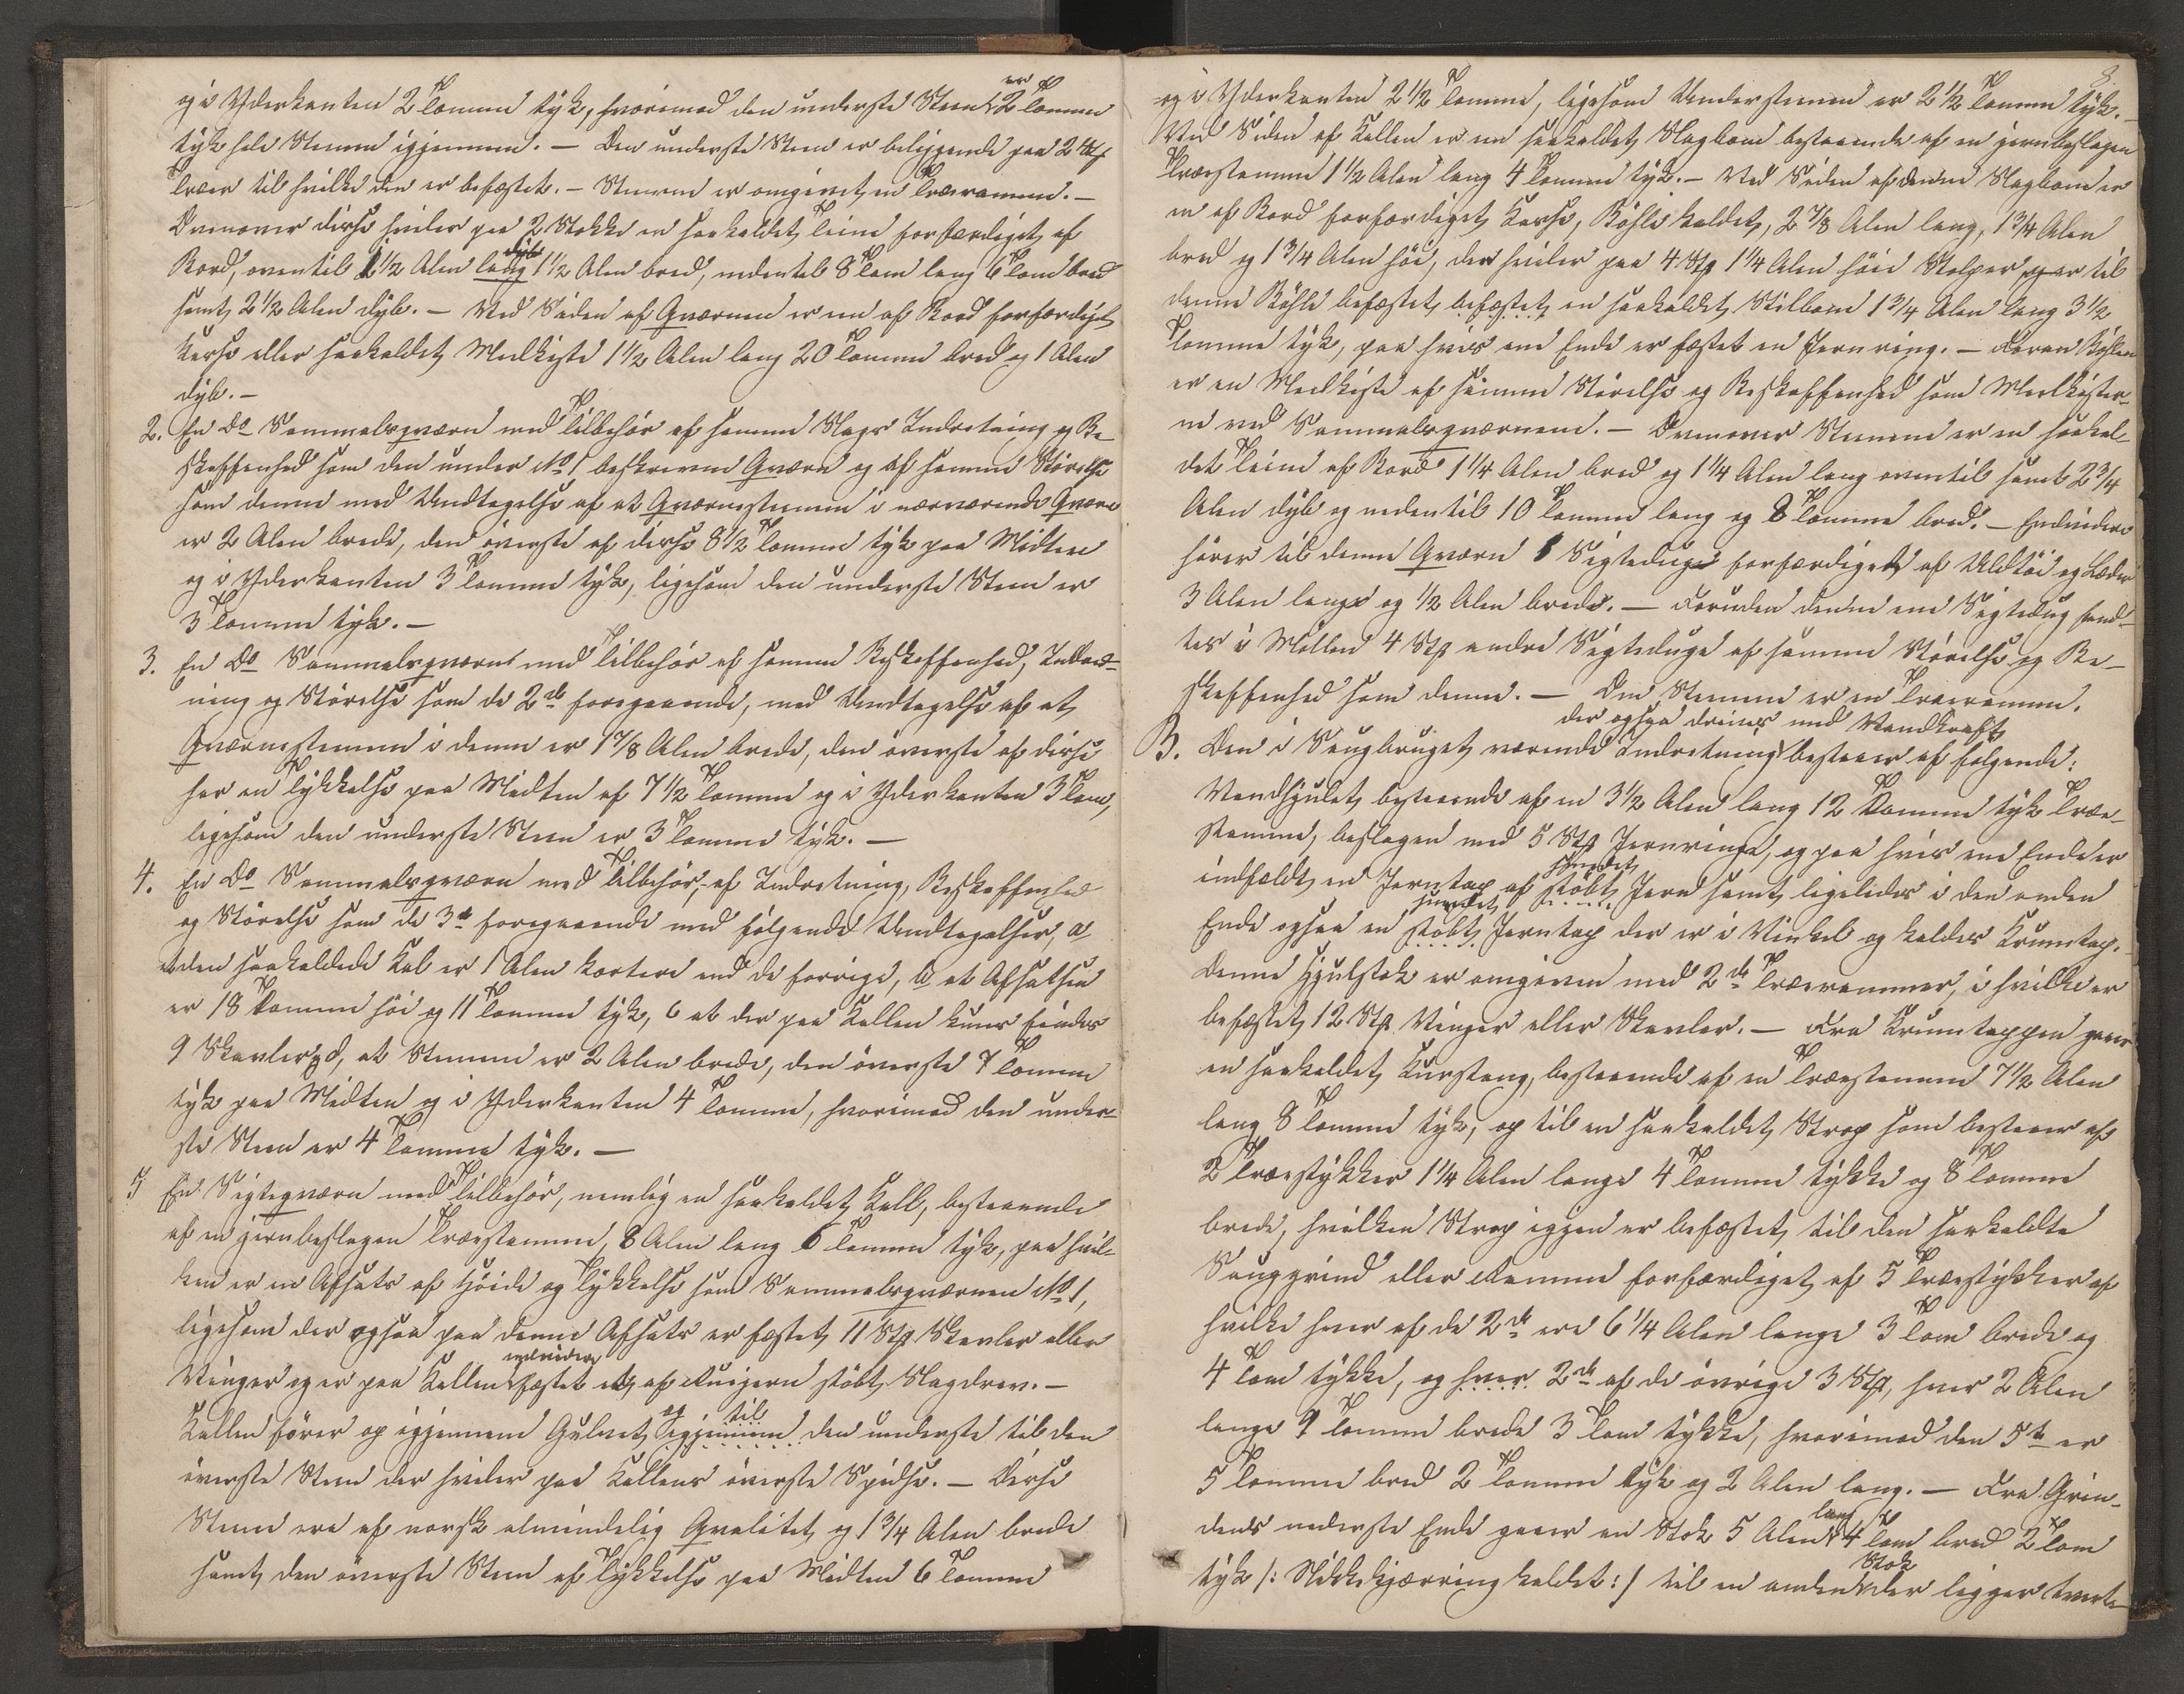 og i Yderkanten 2 Tomme tyk, hvorimod den underste Steen er 2 Tomme
tyk hele Stenen igjennem. — Den underste Steen er beliggende paa 2 Stk
Træer til hvilke den er befæstet. — Stenene er omgivet en Træramme. —
Ovenover disse hviler paa 2 Stokke en saakaldet Teine forfærdiget af
Bord, oventil 1 1/2 Alen lang dyb 1 1/2 Alen bred, nedentil 8 Tom lang 6 Tom bred
samt 2 1/2 Alen dyb. — Ved Siden af Qværnen er en af Bord forfærdiget
Kasse eller saakaldet Meelkiste 1 1/2 Alen lang 20 Tomme bred og 1 Alen
dyb. —
2. En Do Sammalsqværn med Tilbehør af samme Slags Indretning og Be-
skaffenhed som den under No 1 beskrevne Qværn og af samme Størelse
som denne med Undtagelse af at Qværnstenene i nærværende Qværn
er 2 Alen brede, den øverste af disse 8 1/2 Tomme tyk paa Midten
og i Yderkanten 3 Tomme tyk, ligesom den underste Steen er
3 Tomme tyk. —
3. En Do Sammalsqværn med Tilbehør af samme Beskaffenhed, Indret-
ning og Størelse som de 2de foregaaende, med Undtagelse af at
Qværnstenene i denne er 1 7/8 Alen brede, den øverste af disse
har en Tykkelse paa Midten af 7 1/2 Tomme og i Yderkanten 3 Tom,
ligesom den underste Steen er 3 Tomme tyk. —
4. En Do Sammalsqværn med Tilbehør, af Indretning, Beskaffenhed
og Størelse som de 3de foregaaende med følgende Undtagelser, a
at den saakaldede Kal er 1 Alen kortere end de forrige, b at Afsatsen
er 18 Tomme høi og 11 Tomme tyk, c at der paa Kallen kuns findes
9 Skavler, d, at Stenene er 2 Alen brede, den øverste 7 Tomme
tyk paa Midten og i Yderkanten 4 Tomme, hvorimod den under-
ste Steen er 4 Tomme tyk. —
5 En Sigteqværn med Tilbehør, nemlig en saakaldet Kall, bestaaende
af en jernbeslagen Træstamme, 8 Alen lang 6 Tomme tyk, paa hvil-
ken er en Afsats af Høide og Tykkelse som Sammalsqværnen No 1,
ligesom der ogsaa paa denne Afsats er fæstet 11 Stk Skavler eller
Vinger og er paa Kallen endvidere fæstet et af Rujern støbt Slagdrev. —
Kallen fører op igjennem Gulvet og igjennem til den underste til den
øverste Steen der hviler paa Kallens øverste Spidse. — Disse
Stene ere af norsk almindelig Qvalitet og 1 3/4 Alen brede
samt den øverste Steen af Tykkelse paa Midten 6 Tomme
8.
og i Yderkanten 2 1/2 Tomme, ligesom Understenen er 2 1/2 Tomme tyk. —
Ved Siden af Kallen er en saakaldet Slagbom bestaaende af en jernbeslagen
Træstamme 1 1/2 Alen lang 4 Tomme tyk. — Ved Siden af denne Slagbom er
en af Bord forfærdiget Kasse, Bøhle kaldet, 2 7/8 Alen lang, 1 3/4 Alen
bred og 1 3/4 Alen høi, der hviler paa 4 Stk 1 1/4 Alen høie Stolper og er til
denne Bøhle befæstet befæstet en saakaldet Stilbom 1 3/4 Alen lang 3 1/2
Tomme tyk, paa hvis ene Ende er fæstet en Jernring. — Foran Bøhlen
er en Meelkiste af samme Størelse og Beskaffenhed som Meelkister-
ne ved Sammalsqværnene. — Ovenover Stenene er en saakal-
det Teine af Bord 1 1/4 Alen bred og 1 1/4 Alen lang oventil samt 2 3/4
Alen dyb og nedentil 10 Tomme lang og 8 Tomme bred. — Endvidere
hører til denne Qværn 1 Sigtedug forfærdiget af Uldtøi og Læder
3 Alen lang og 1/2 Alen bred. — Foruden denne ene Sigtedug fand-
tes i Møllen 4 Stk andre Sigteduge af samme Størelse og Be-
skaffenhed som denne. — Om Stenene er en Træramme.
der ogsaa drives med Vandkraft
B. Den i Saugbruget værende Indretning bestaaer af følgende:
Vandhjulet bestaaende af en 3 1/2 Alen lang 12 Tomme tyk Træ-
stamme, beslagen med 5 Stk Jernringe, og paa hvis ene Ende er
indfældt en Jerntap af støbt smedet Jern samt ligeledes i den anden
Ende ogsaa en støbt smedet Jerntap der er i Vinkel og kaldes Krumtap.
Denne Hjulstok er omgiven med 2de Trærammer, i hvilke er
befæstet 12 Stk Vinger eller Skavler. — Fra Krumtappen gaaer
en saakaldet Kurstang, bestaaende af en Træstamme 7 1/2 Alen
lang 8 Tomme tyk, op til en saakaldet Strop som bestaaer af
2 Træstykker 1 1/4 Alen lange 4 Tomme tykke og 8 Tomme
brede, hvilken Strop igjen er befæstet til den saakaldte
Sauggrind eller Ramme forfærdiget af 5 Træstykker af
hvilke hver af de 2de ere 6 1/4 Alen lange 3 Tom brede og
4 Tom tykke, og hver 2de af de øvrige 3 Stk, hver 2 Alen
lange 9 Tomme brede 3 Tom tykke, hvorimod den 5te er
5 Tomme bred 2 Tomme tyk og 2 Alen lang. — Fra Grin-
dens nederste Ende gaaer en Stok 5 Alen lang 4 Tom bred 2 Tom
tyk /: Slikkekjærring kaldet :/ til en anden Stok der ligger tverts